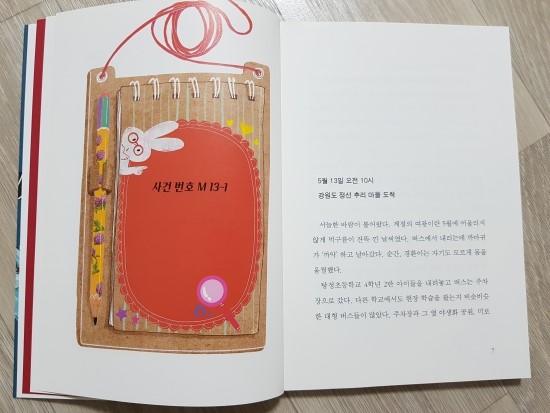 사건 번호 M 13-1
5월 13일 오전 10시
강원도 정선 추리 마을 도착
서늘한 바람이 불어왔다. 계절의 여왕이란 5월에 어울리지
않게 먹구름이 잔뜩 낀 날씨였다. 버스에서 내리는데 까마귀
가 '까악' 하고 날아갔다. 순간, 경환이는 자기도 모르게 몸을
움찔했다.
탐정초등학교 4학년 2반 아이들을 내려놓고 버스는 주차
장으로 갔다. 다른 학교에서도 현장 학습을 왔는지 비슷비슷
한 대형 버스들이 많았다. 주차장과 그 옆 야생화 공원, 미로
7